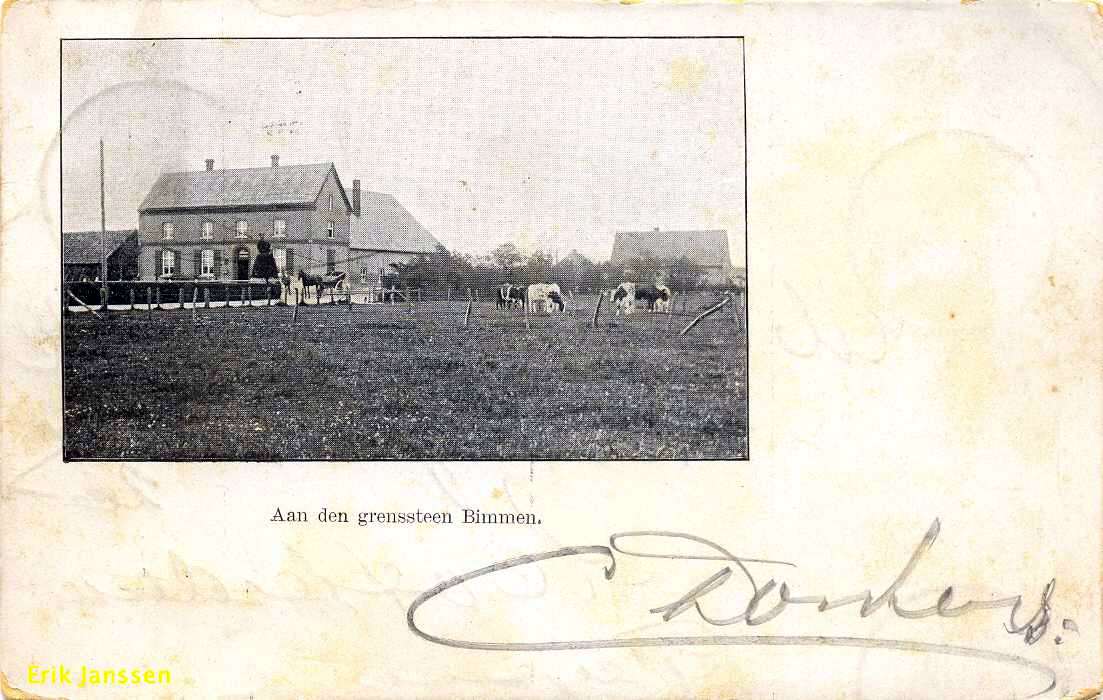 Aan den grenssteen Bimmen.
Donkers.
Erik Janssen